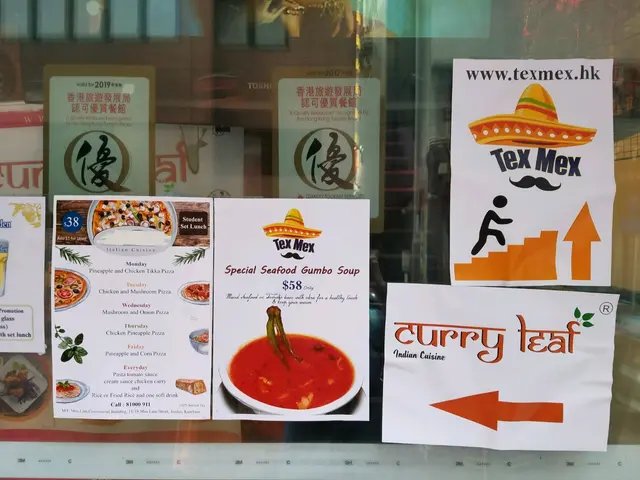 2019
香港旅遊發展局
認可優質餐館
優
2019
香港旅遊發展局
認可優質餐館
優
www.texmex.hk
Tex Mex
$38
Student
Set Lunch
Italian Cuisine
Monday
Pineapple and Chicken Tikka Pizza
Tuesday
Chicken and Mushrooms Pizza
Wednesday
Mushroom and Onion Pizza
Thursday
Chicken Pineapple Pizza
Friday
Pineapple and Corn Pizza
Everyday
Pasta tomato sauce
cream sauce chicken curry
and
Rice or Fried Rice and one soft drink
Call : 81000 911
Tex Mex
Special Seafood Gumbo Soup
$58 Only
curry leaf ®
Indian Cuisine
urry leaf
Promotion
glass
set lunch